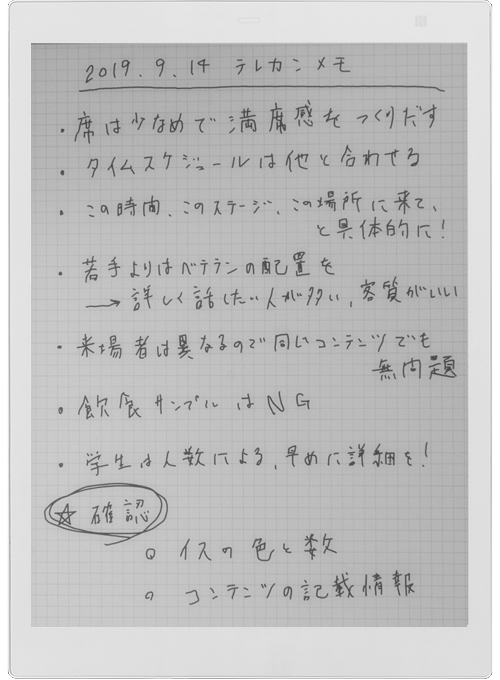 2019.9.14 テレカンメモ
・席は少なめで満席感をつくりだす
・タイムスケジュールは他と合わせる
・この時間、このステージ、この場所に来て、
と具体的に!
・若手よりはベテランの配置を
→ 詳しく話したい人が多い、客質がいい
・来場者は異なるので同じコンテンツでも
無問題
・飲食サンプルはNG
・学生は人数による、早めに詳細を!
☆ 確認
○ イスの色と数
○ コンテンツの記載情報